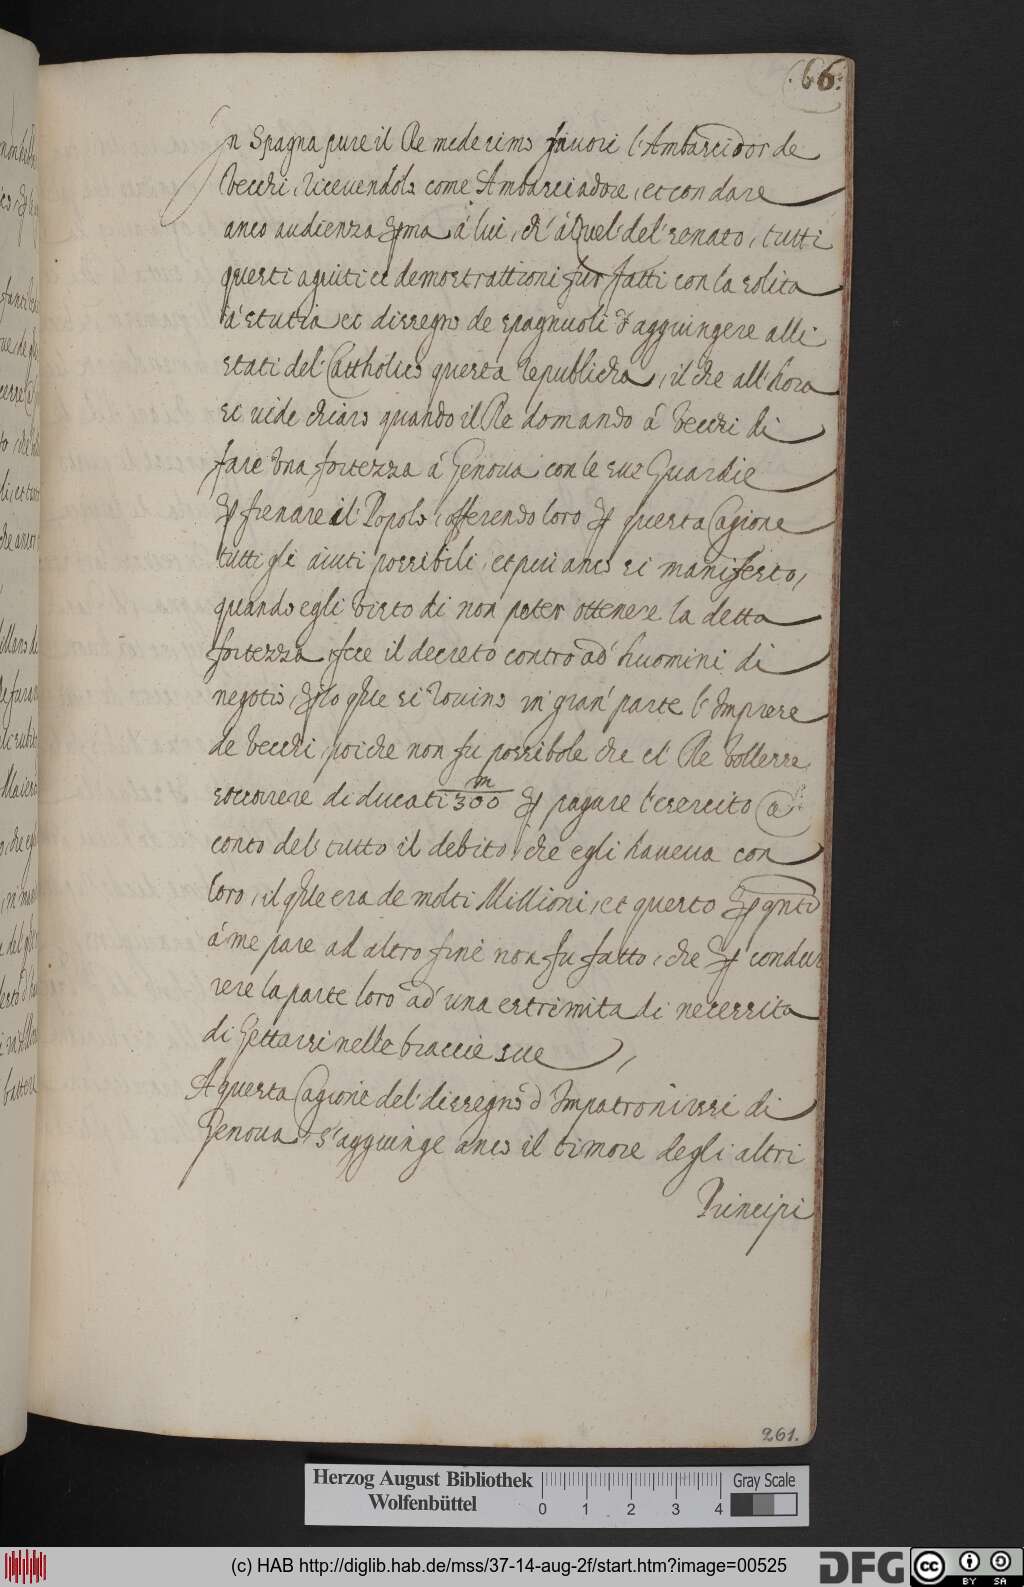 .66.
In Spagna pure il Re medesimo favorì l'Ambascidor de
Vecchi, ricevendolo come Ambasciadore, et con dare
anco audienza pma à lui, ch' à Quel' del' senato, tutti
questi agiuti et demostrattioni fur fatti con la solita
à stutia et dissegno de spagnuoli d'aggiungere alli
stati del' Catthólico questa republicha, il che all'hora
se vide chiaro quando il Re domandò á Vecchi di
fare Una fortezza á Genova con le sue Guardie
p frenare il Popolo, offerendo loro p questa Cagione
tutti gli aiuti possibili, et più anco si manifesto,
quando egli visto di non poter ottenere la detta
fortezza, fece il decreto contro ad' huomini di
negotio, plo qhle si rovino in gran' parte l'Imprese
de Vecchi, poiche non fu possibole che el Re Vollesse
soccorrere di ducati 300 m p pagare l'esercito a
conto del' tutto il debito, che egli haveva con
loro, il qhle era de molti Millioni, et questo p qnto
á me pare ad altro fine non fu fatto, che p condur
rere la parte loro ad' una estrimita di necessita
di Gettarsi nelle braccie sue
A questa Cagione del' dissegno d' Impatronirsi di
Genova, s'aggiunge anco il timore degli altri
Principi
261.
Herzog August Bibliothek
Wolfenbüttel
0 1 2 3 4
Gray Scale
(c) HAB http://diglib.hab.de/mss/37-14-aug-2f/start.htm?image=00525
DFG
cc BY SA